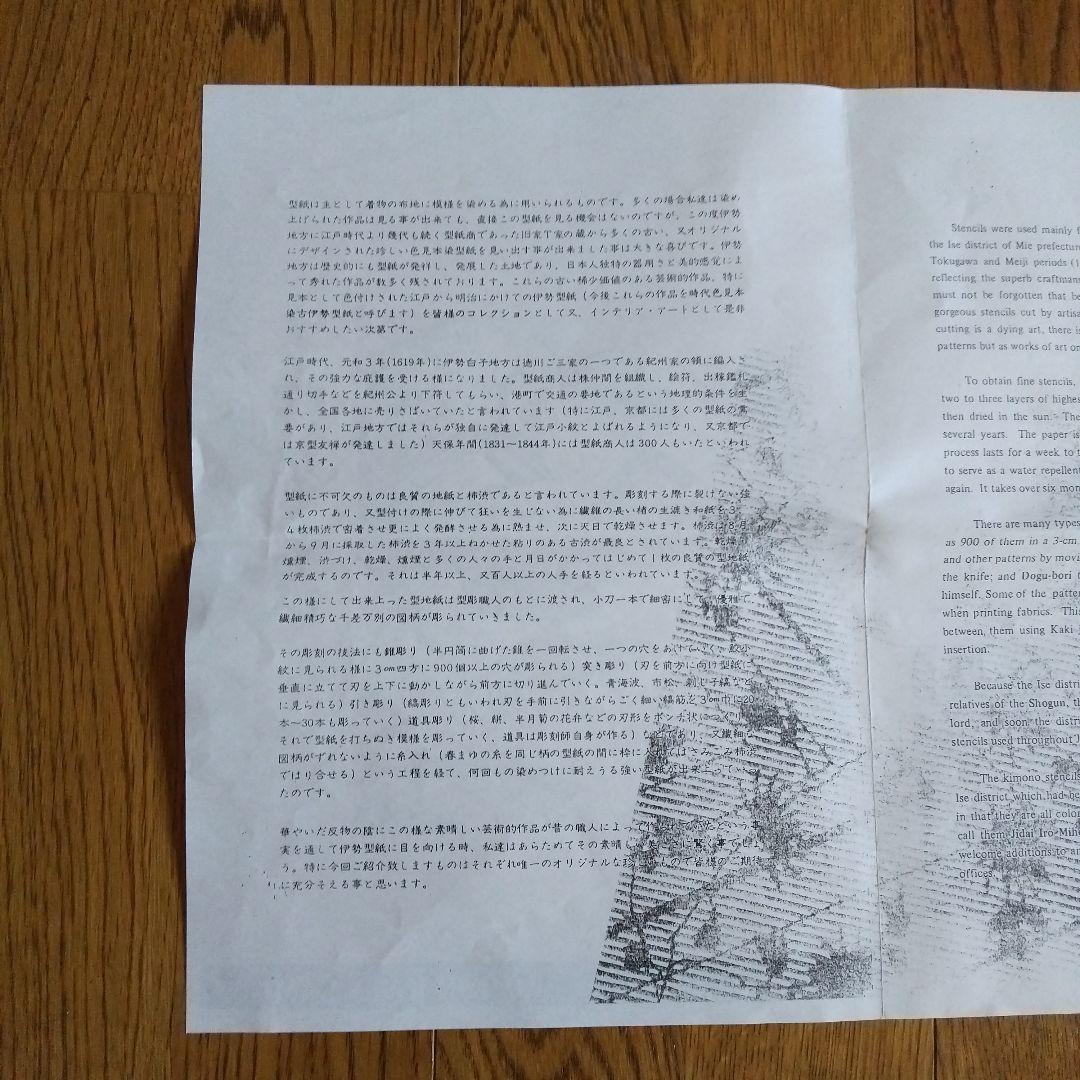 型紙は主として着物の布地に模様を染める為に用いられるものです。多くの場合私達は染め
上げられた作品は見る事が出来ても、直接この型紙を見る機会はないのですが、この度伊勢
地方に江戸時代より幾代も続く型紙商であった旧家T家の蔵から多くの古い、又オリジナル
にデザインされた珍しい色見本染型紙を見い出す事が出来ました事は大きな喜びです。伊勢
地方は歴史的にも型紙が発祥し、発展した土地であり、日本人独特の器用さと美的感覚によ
って秀れた作品が数多く残されております。これらの古い稀少価値のある芸術的作品、特に
見本として色付けされた江戸から明治にかけての伊勢型紙（今後これらの作品を時代色見本
染古伊勢型紙と呼びます）を皆様のコレクションとして又、インテリア・アートとして是非
おすすめしたい次第です。
江戸時代、元和3年(1619年)に伊勢白子地方は徳川ご三家の一つである紀州家の領に編入さ
れ、その強力な庇護を受ける様になりました。型紙商人は株仲間を組織し、絵符、出稼鑑札
通り切手などを紀州公より下符してもらい、港町で交通の要地であるという地理的条件を生
かし、全国各地に売りさばいていたと言われています（特に江戸、京都には多くの型紙の需
要があり、江戸地方ではそれらが独自に発達して江戸小紋とよばれるようになり、又京都で
は京型友禅が発達しました）天保年間(1831～1844年)には型紙商人は300人もいたといわれ
ています。
型紙に不可欠のものは良質の地紙と柿渋であると言われています。彫刻する際に裂けない強
いものであり、又型付けの際に伸びて狂いを生じない為に繊維の長い楮の生漉き和紙を3、
4枚柿渋で密着させ更によく発酵させる為に熟ませ、次に天日で乾燥させます。柿渋は8月
から9月に採取した柿渋を3年以上ねかせた粘りのある古渋が最良とされています。乾燥、
燻煙、渋づけ、乾燥、燻煙と多くの人々の手と月日がかかってはじめて1枚の良質の型地紙
が完成するのです。それは半年以上、又百人以上の人手を経るといわれています。
この様にして出来上った型地紙は型彫職人のもとに渡され、小刀一本で細密にして、優雅で
繊細精巧な千差万別の図柄が彫られていきました。
その彫刻の技法にも錐彫り（半円筒に曲げた錐を一回転させ、一つの穴をあけていく、鮫小
紋に見られる様に3cm四方に900個以上の穴が彫られる）突き彫り（刃を前方に向け型紙に
垂直に立てて刃を上下に動かしながら前方に切り進んでいく。青海波、市松、刺し子縞など
に見られる）引き彫り（縞彫りともいわれ刃を手前に引きながらごく細い縞筋を3cm巾に20
本～30本も彫っていく）道具彫り（桜、絣、半月菊の花弁などの刃形をポンチ状につくり、
それで型紙を打ちぬき模様を彫っていく、道具は彫刻師自身が作る）などであり、又繊細な
図柄がずれないように糸入れ（春まゆの糸を同じ柄の型紙の間に枠に入れてはさみこみ柿渋
ではり合せる）という工程を経て、何回もの染めつけに耐えうる強い型紙が出来上っていっ
たのです。
華やいだ反物の陰にこの様な素晴しい芸術的作品が昔の職人によって作られていたという事
実を通して伊勢型紙に目を向ける時、私達はあらためてその素晴し に驚く事でしょ
う。特に今回ご紹介致しますものはそれぞれ唯一のオリジナルな もので皆様のご期待
に充分そえる事と思います。
Stencils were used mainly
the Ise district of Mie prefectur
Tokugawa and Meiji periods (1
reflecting the superb craftmans
must not be forgotten that be
gorgeous stencils cut by artisa
cutting is a dying art, there is
patterns but as works of art or
To obtain fine stencils,
two to three layers of highes
then dried in the sun. The
several years. The paper is
process lasts for a week to t
to serve as a water repellent
again. It takes over six mon
There are many types
as 900 of them in a 3-cm
and other patterns by movi
the knife; and Dogu-bori
himself. Some of the patte
when printing fabrics. This
between, them using Kaki
insertion.
Because the Ise distri
relatives of the Shogun, th
lord, and soon, the distri
stencils used throughout J
The kimono stencils
Ise district which had be
in that they are all colo
call them Jidai Iro-Mih
welcome additions to an
offices.